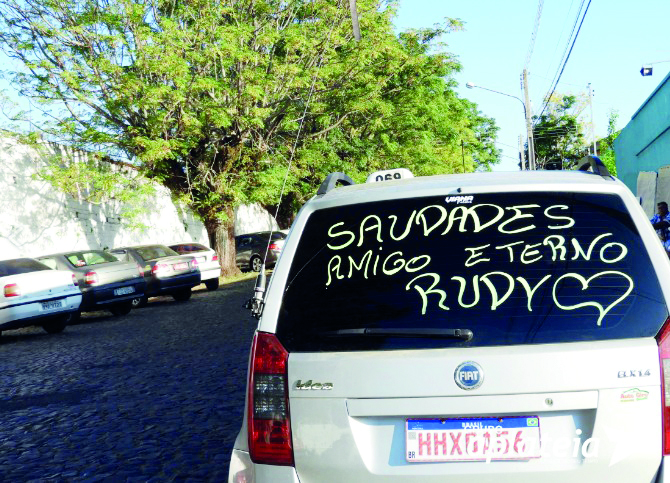 069
VIANA
SAUDADES
AMIGO ETERNO
RUDY
FIAT
Idea
ELX 1.4
BR